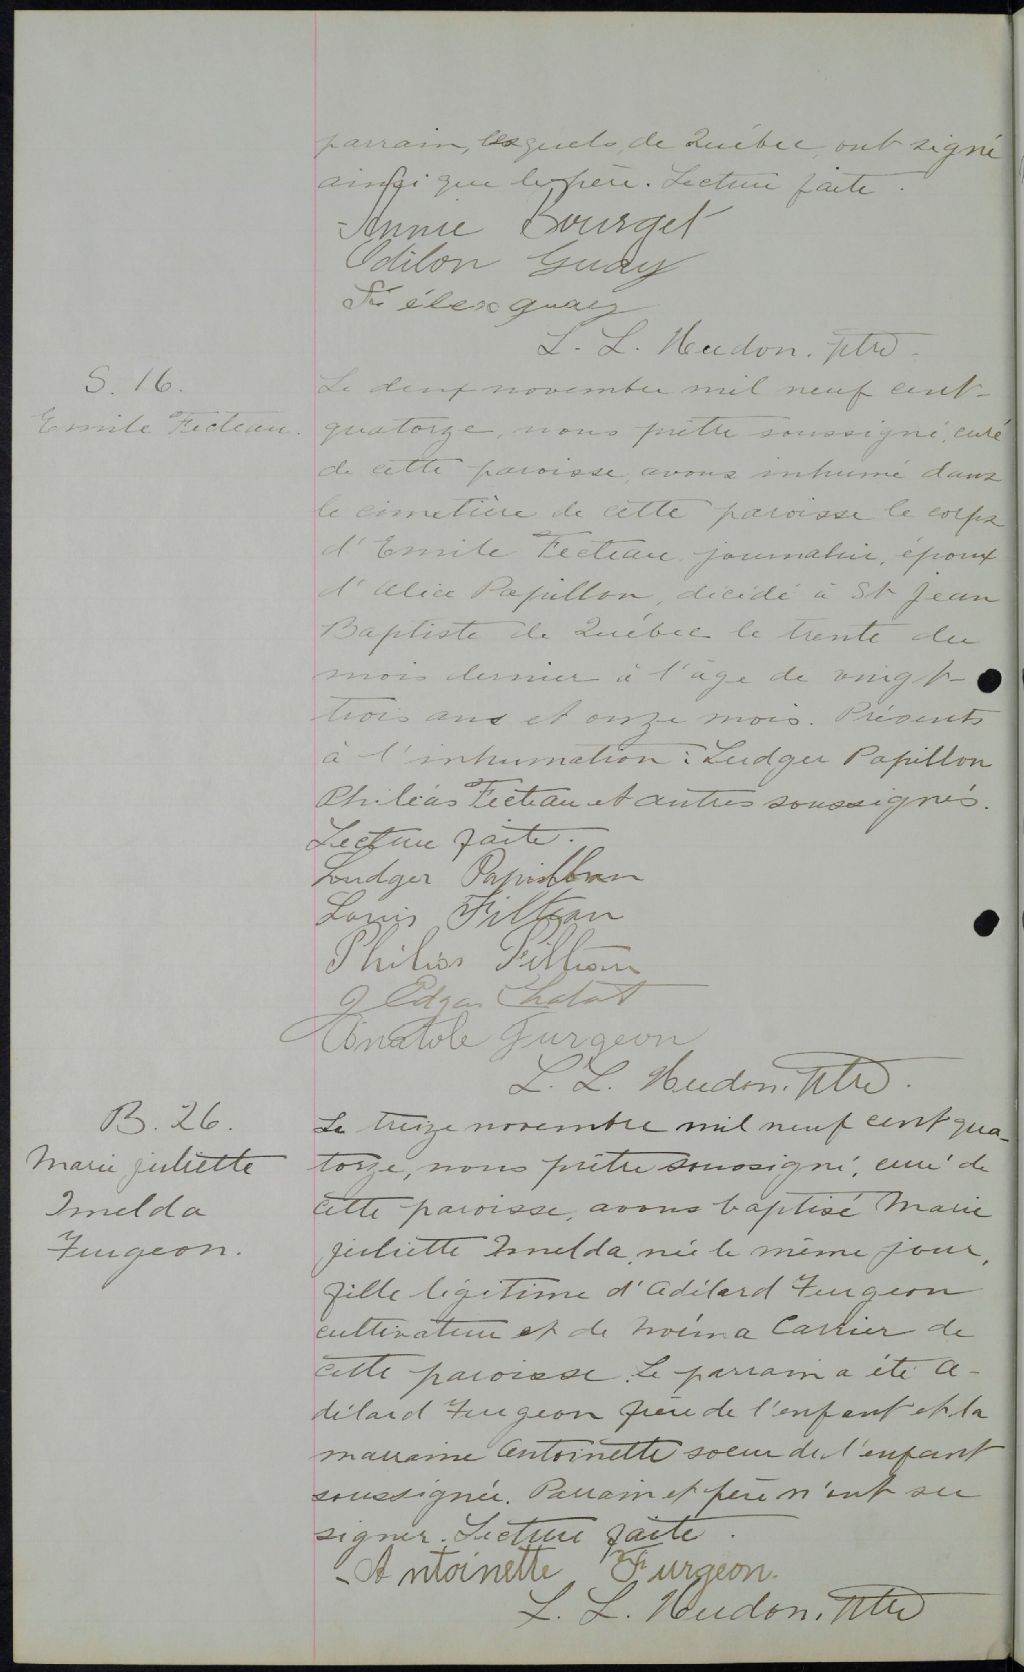 parrain, lesquels, de Québec, ont signé
ainsi que le père. Lecture faite.
Annie Bourget
Odilon Guay
L. L. Hudon, ptre.
S. 16.
Emile Fecteau.
Le deux november mil neuf cent-
quatorze, nous prêtre soussigné, curé
de cette paroisse, avons inhumé dans
le cimetière de cette paroisse le corps
d'Emile Fecteau, journalier, époux
d'Alice Papillon, décédé à St Jean
Baptiste de Québec le trente du
mois dernier à l'âge de vingt-
trois ans et onze mois. Présents
à l'inhumation: Ludger Papillon
Philéas Fecteau et autres soussignés.
Lecture faite.
Ludger Papillon
Louis Filteau
Philias
J Edgar
Anatole Turgeon
L. L. Hudon, ptre.
B. 26.
Marie juliette
Imelda
Turgeon.
Le treize novembre mil neuf cent qua-
torze, nous prêtre soussigné, curé de
cette paroisse, avons baptisé Marie
juliette Imelda, née le même jour,
fille légitime d'Adélard Turgeon
cultivateur et de Noéma Carrier de
cette paroisse. Le parrain a été A-
délard Turgeon frère de l'enfant et la
marraine Antoinette soeur de l'enfant
soussignée. Parrain et père n'ont su
signer. Lecture faite.
Antoinette Turgeon.
L. L. Hudon, ptre